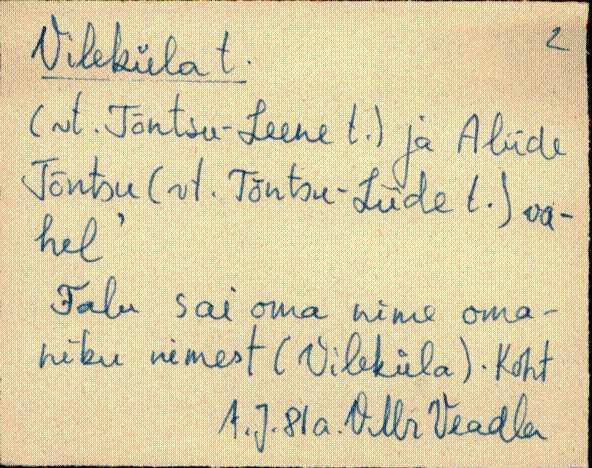 Vileküla t. 2
(vt. Tõntsu-Leene t.) ja Aliide
Tõntsu (vt. Tõntsu-Liide t.) va-
hel'
Talu sai oma nime oma-
niku nimest (Vileküla). Koht
A. J. 81 a. Veadla